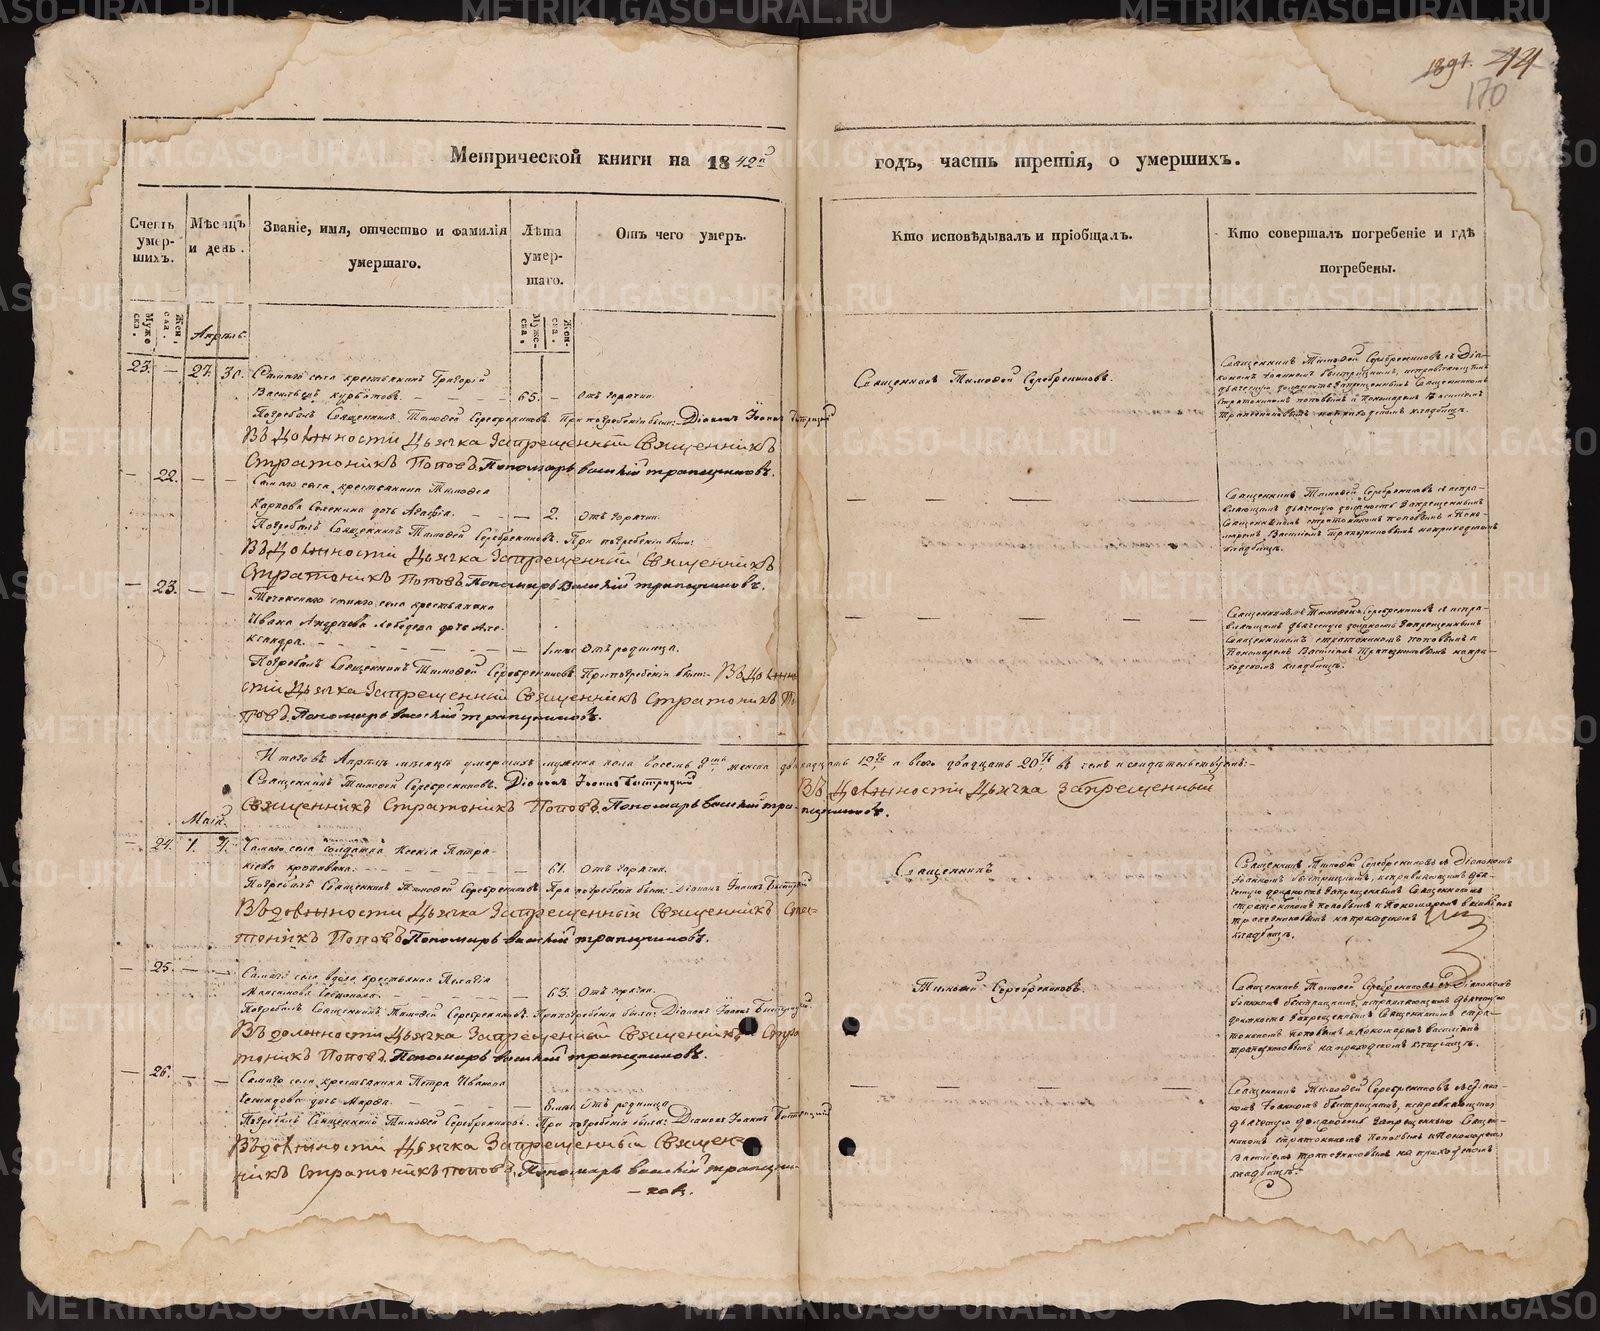 1891. 44
170
Метрической книги на 1842й годъ, часть третія, о умершихъ.
Счетъ умер- шихъ.
Мѣсяцъ и день.
Званіе, имя, отчество и фамилія умершаго.
Лѣта умер- шаго.
Отъ чего умеръ.
Кто исповѣдывалъ и пріобщалъ.
Кто совершалъ погребеніе и гдѣ погребены.
Муже ска.
Жен. ска.
Апрѣль.
Муже- ска.
Жен- ска.
23. — 27. 30. Самаго села крестьянинъ Григорій
Васильевъ Курбатовъ. 65. — Отъ горячки.
Священникъ Тимофей Серебренниковъ.
Погребалъ Священникъ Тимофей Серебренниковъ. При погребеніи были: Діаконъ Іоаннъ Быстрицкій
Въ должности Дьячка Запрещенный Священникъ
Стратоникъ Поповъ. Пономарь Василій Трапезниковъ.
Священникъ Тимофей Серебренниковъ съ Діа-
кономъ Іоанномъ Быстрицкимъ, исправляющимъ
дьяческую должность Запрещеннымъ Священникомъ
Стратоникомъ Поповымъ и Пономаремъ Василіемъ
Трапезниковымъ на приходскомъ кладбищѣ.
— 22. — — Самаго села крестьянина Тимофея
Карпова дочь Агафія. — 2. Отъ горячки.
Погребалъ Священникъ Тимофей Серебренниковъ. При погребеніи были:
Въ Должности Дьячка Запрещенный Священникъ
Стратоникъ Поповъ Пономарь Василій Трапезниковъ.
Священникъ Тимофей Серебренниковъ съ испра-
вляющимъ дьяческую должность Запрещеннымъ
Священникомъ Стратоникомъ Поповымъ и Поно-
маремъ Василіемъ Трапезниковымъ на приходскомъ
кладбищѣ.
— 23. — — села крестьянина
Ивана Андреева Лебедева дочь Але-
ксандра. Отъ родимца.
Погребалъ Священникъ Тимофей Серебренниковъ. При погребеніи были: Въ Должно-
сти Дьячка Запрещенный Священникъ Стратоникъ По-
повъ. Пономарь Василій Трапезниковъ.
Священникъ Тимофей Серебренниковъ съ испра-
вляющимъ дьяческую должность Запрещеннымъ
Священникомъ Стратоникомъ Поповымъ и
Пономаремъ Василіемъ Трапезниковымъ на при-
ходскомъ кладбищѣ.
Итого въ Апрѣлѣ мѣсяцѣ умершихъ мужеска пола восемь 8мь женска двѣнадцать 12ть а всего двадцать 20ть въ чемъ и свидѣтельствуемъ:
Священникъ Тимофей Серебренниковъ. Діаконъ Іоаннъ Быстрицкій Въ Должности Дьячка Запрещенный
Священникъ Стратоникъ Поповъ. Пономарь Василій Трапезниковъ.
Май.
— 24. 1. 4. Самаго села солдатка Ксенія Патра-
кіева 61. Отъ горячки.
Священникъ
Погребалъ Священникъ Тимофей Серебренниковъ. При погребеніи были: Діаконъ Іоаннъ Быстрицкій
Въ должности Дьячка Запрещенный Священникъ Стра-
тоникъ Поповъ Пономарь Василій Трапезниковъ.
Священникъ Тимофей Серебренниковъ съ Діакономъ
Іоанномъ Быстрицкимъ, исправляющимъ дья-
ческую должность Запрещеннымъ Священникомъ
Стратоникомъ Поповымъ и Пономаремъ Василіемъ
Трапезниковымъ на приходскомъ
кладбищѣ.
— 25. — — Самаго села вдова крестьянка Пелагія
Максимова 63. Отъ горячки.
Тимофей Серебренниковъ.
Погребалъ Священникъ Тимофей Серебренниковъ. При погребеніи были: Діаконъ Іоаннъ Быстрицкій
Въ должности Дьячка Запрещенный Священникъ Стра
тоникъ Поповъ. Пономарь Василій Трапезниковъ.
Священникъ Тимофей Серебренниковъ съ Діакономъ
Іоанномъ Быстрицкимъ, исправляющимъ дьяческую
должность Запрещеннымъ Священникомъ Стра-
тоникомъ Поповымъ и Пономаремъ Василіемъ
Трапезниковымъ на приходскомъ кладбищѣ.
— 26. — — Самаго села крестьянина Петра Иванова
дочь Марѳа. Отъ родимца.
Погребалъ Священникъ Тимофей Серебренниковъ. При погребеніи были: Діаконъ Іоаннъ Быстрицкій
Въ должности Дьячка Запрещенный Священ-
никъ Стратоникъ Поповъ. Пономарь Василій Трапезни-
ковъ.
Священникъ Тимофей Серебренниковъ съ Діако-
номъ Іоанномъ Быстрицкимъ, исправляющимъ
дьяческую должность Запрещеннымъ Священ-
никомъ Стратоникомъ Поповымъ и Пономаремъ
Василіемъ Трапезниковымъ на приходскомъ
кладбищѣ.
METRIKI.GASO-URAL.RU